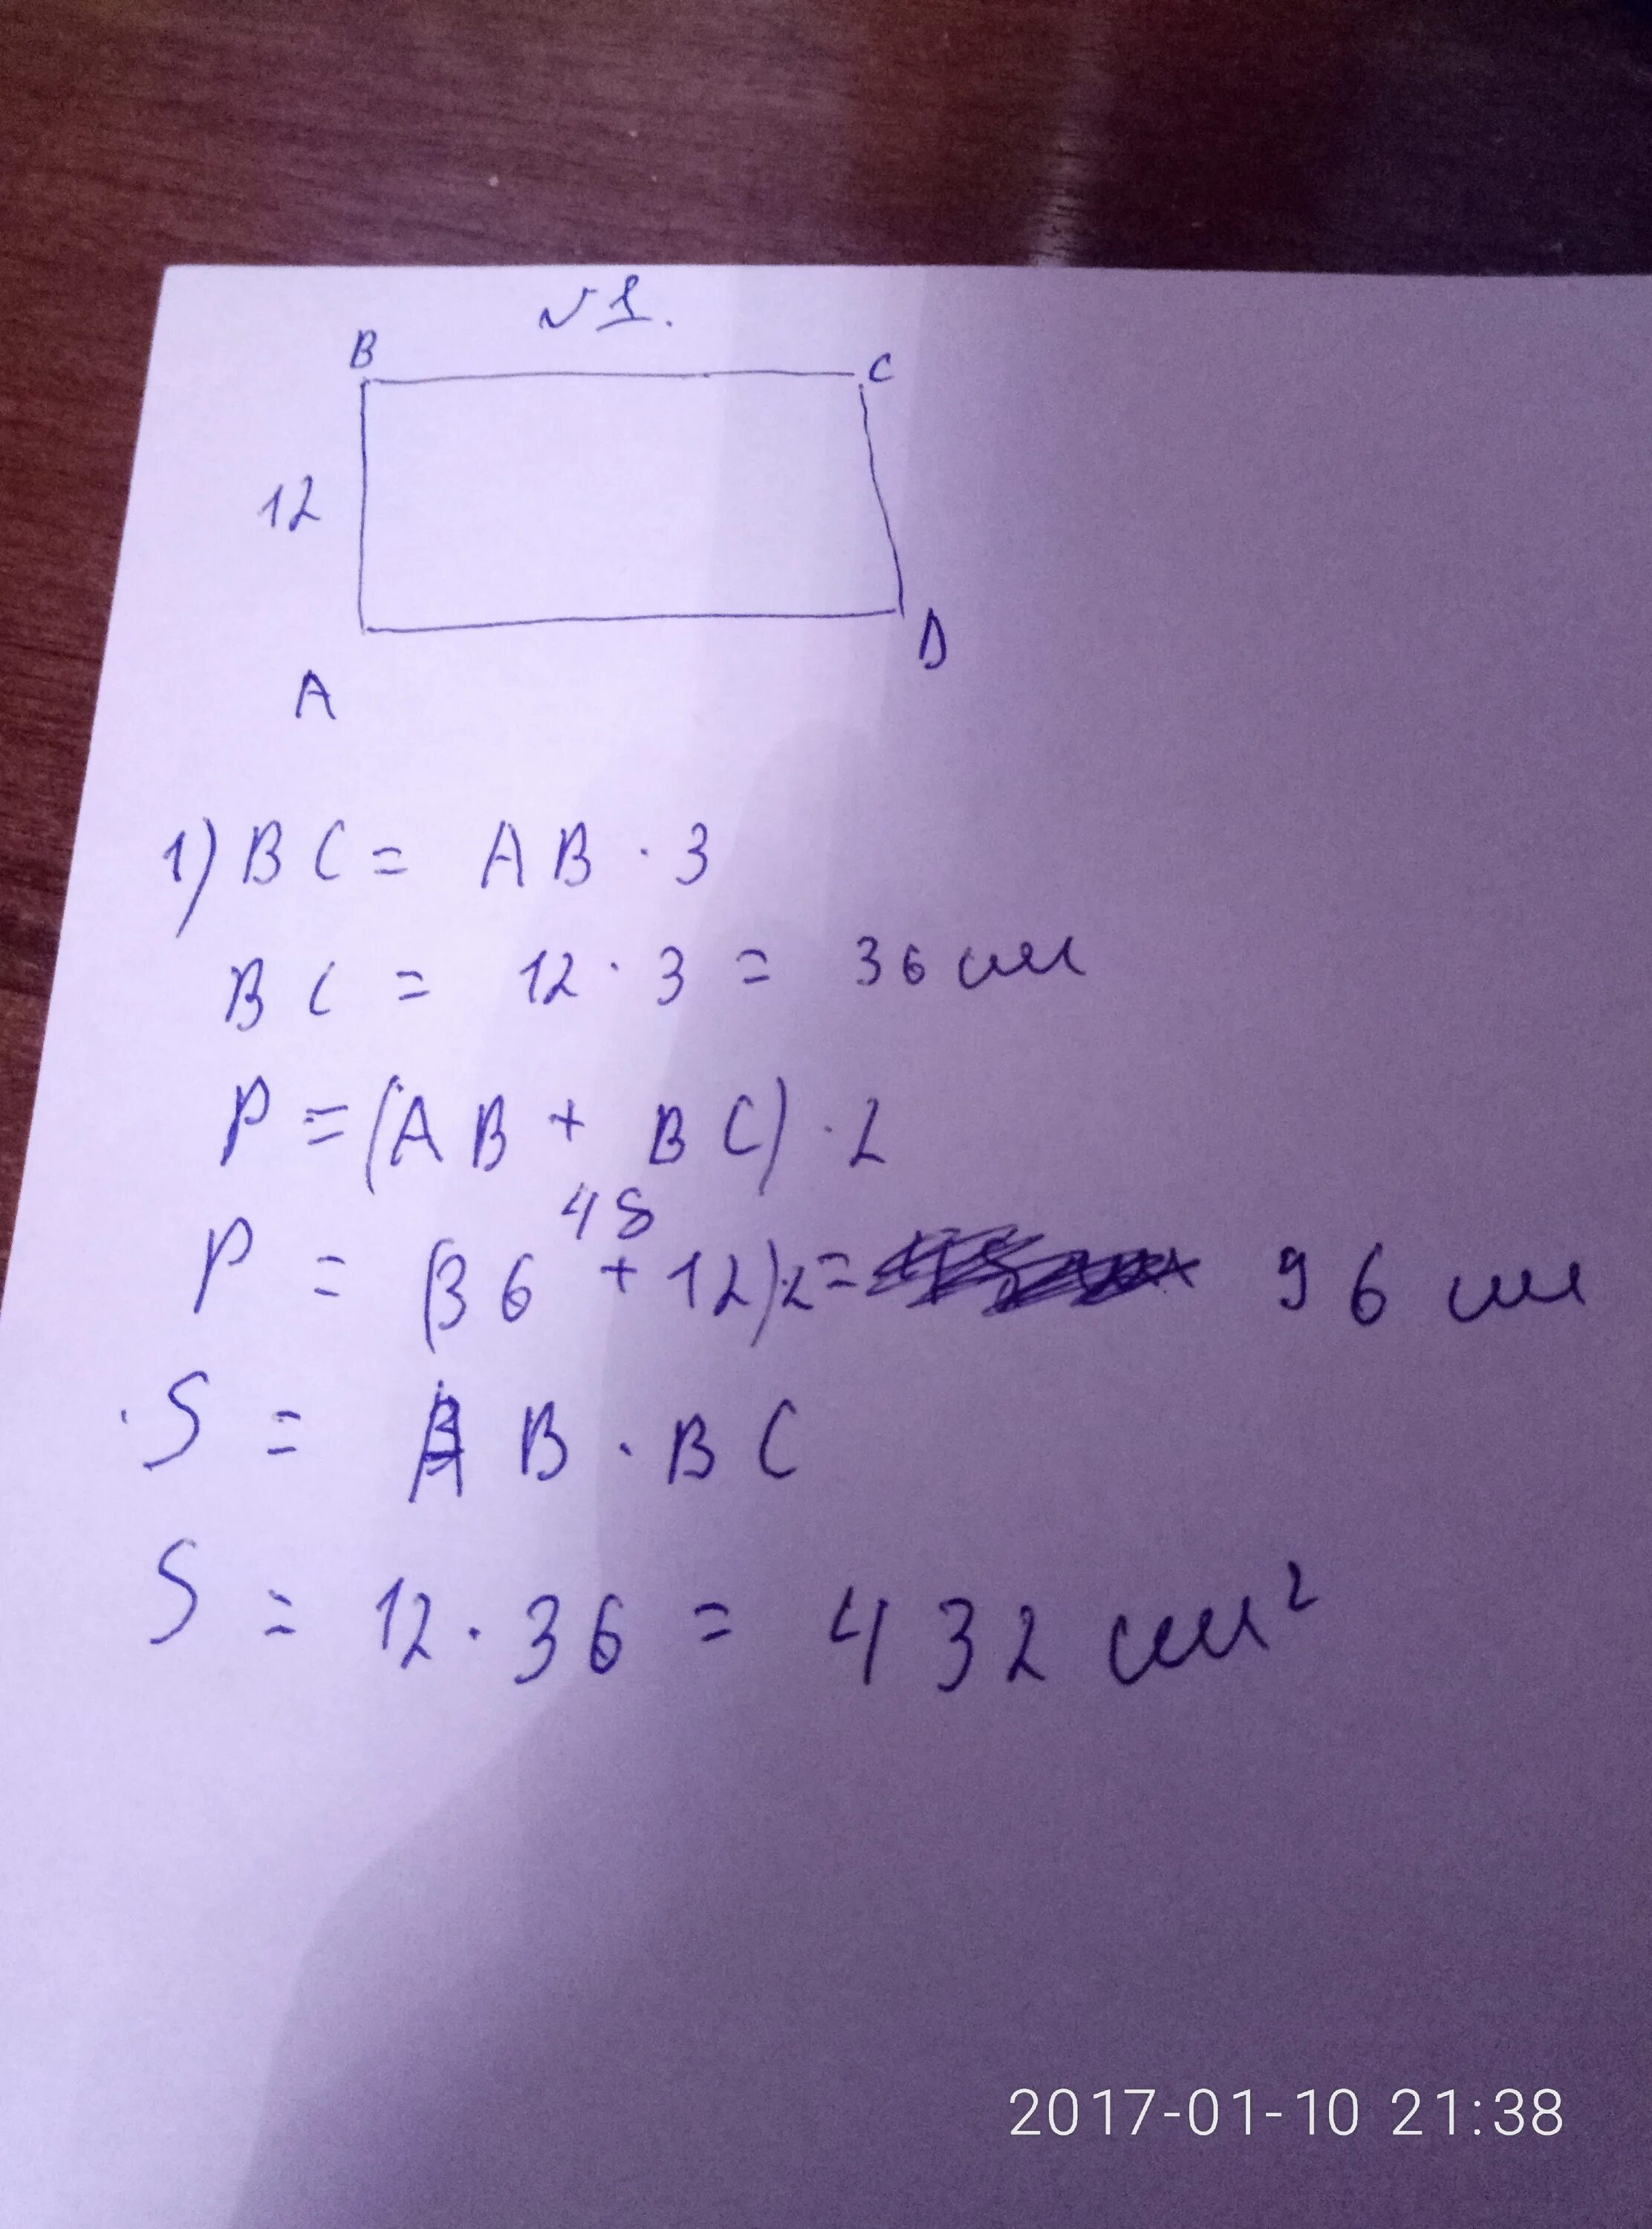 №1.
B C
12
A D
1) BC = AB · 3
BC = 12 · 3 = 36 см
P = (AB + BC) · 2
48
P = (36 + 12)·2 = 96 см
S = AB · BC
S = 12 · 36 = 432 см²
2017-01-10 21:38